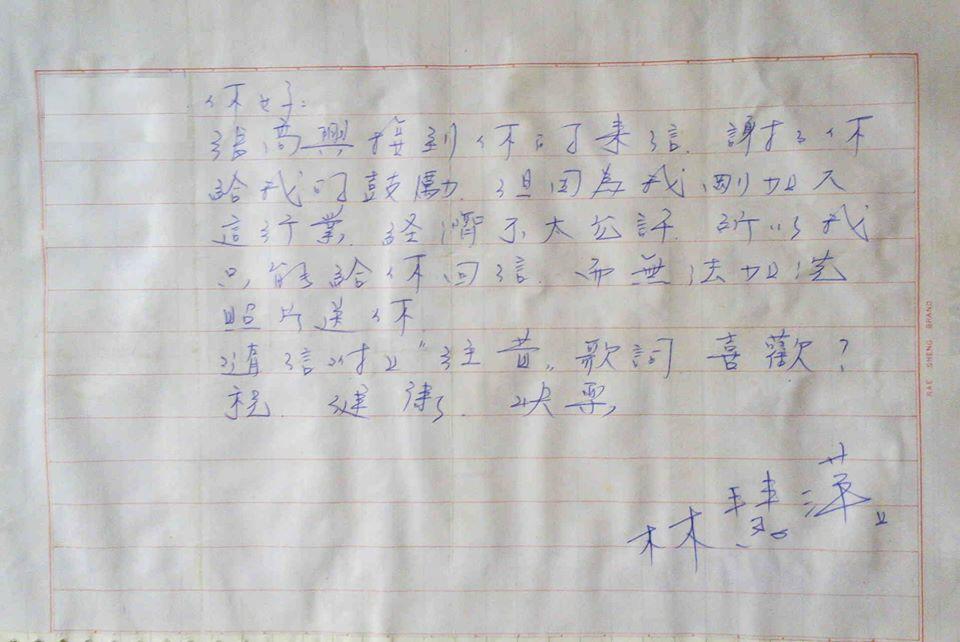 你好:
很高興接到你的来信. 謝々你
給我的鼓勵. 但因為我剛加入
這行業. 経濟不太允許. 所以我
只能給你回信. 而無法加洗
照片送你.
隨信附上"往昔"歌詞 喜歡?
祝. 健康. 快樂
林慧萍
RAE SHENG BRAND